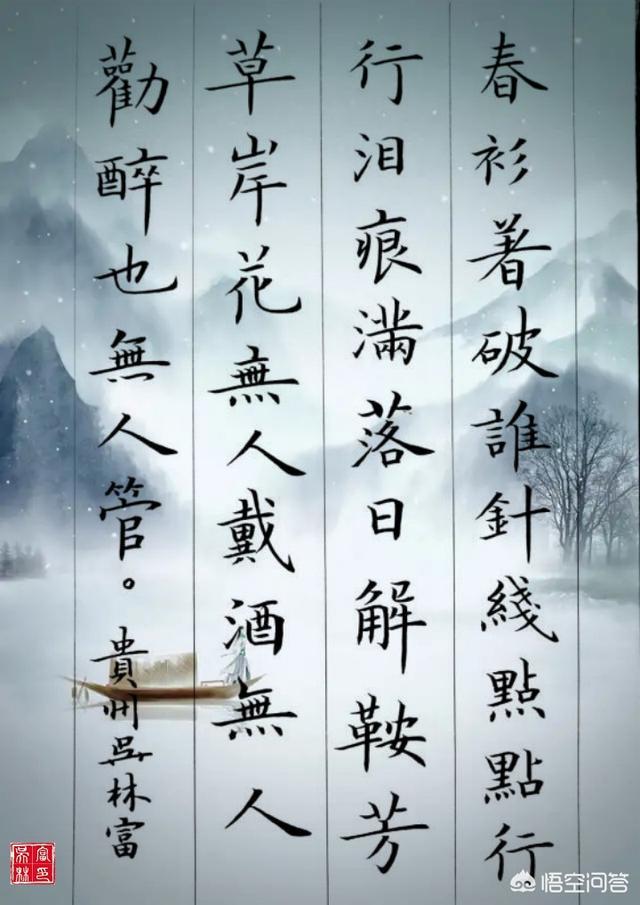 春衫著破誰針綫點點行
行泪痕滿落日解鞍芳
草岸花無人戴酒無人
勸醉也無人管。貴州吳林富
吳林富印
悟空问答